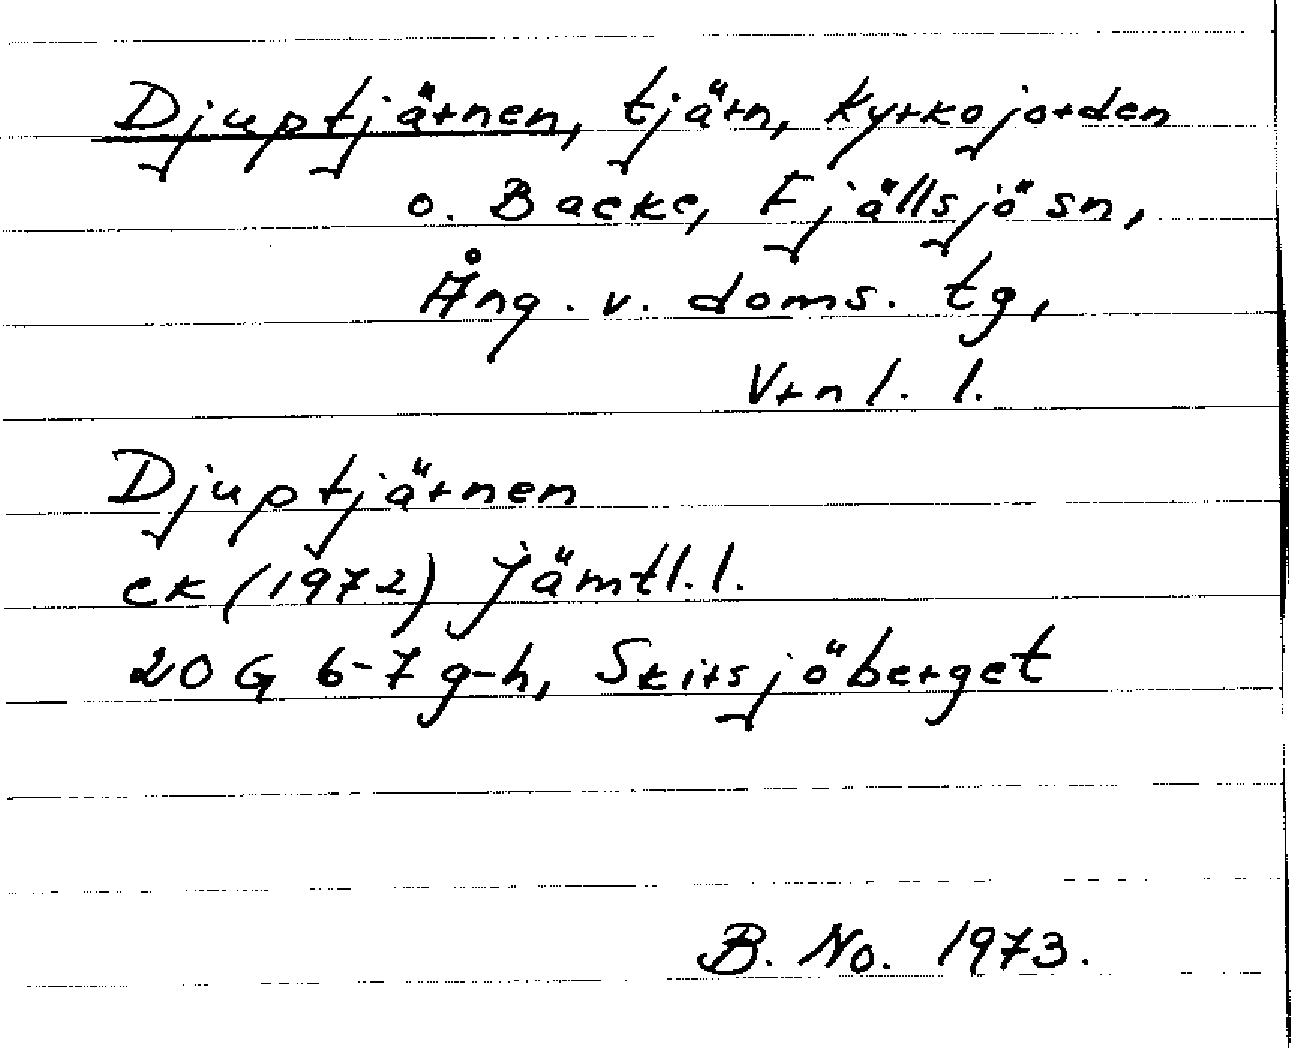 Djuptjärnen, tjärn, Kyrkojorden
o. Backe, Fjällsjö sn,
Ång. v. doms. tg,
Vrnl. l.
Djuptjärnen
ek (1972) Jämtl. l.
20 G 6-7 g-h, Skirsjöberget
B. No. 1973.